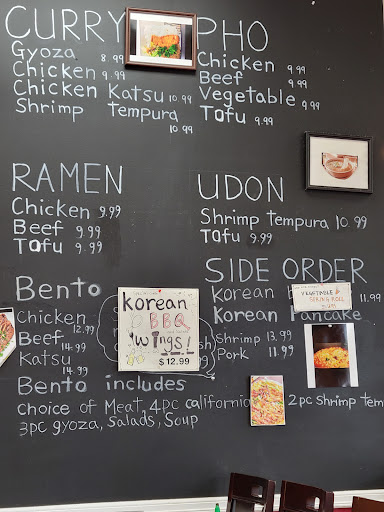 CURRY
Gyoza 8.99
Chicken 9.99
Chicken Katsu 10.99
Shrimp Tempura
10.99
PHO
Chicken 9.99
Beef 9.99
Vegetable 9.99
Tofu 9.99
RAMEN
Chicken 9.99
Beef 9.99
Tofu 9.99
UDON
Shrimp Tempura 10.99
Tofu 9.99
Bento
Chicken
12.99
Beef
14.99
Katsu
14.99
Korean
BBQ
Wings!
$12.99
SIDE ORDER
Korean 11.99
VEGETABLE
SPRING ROLL
Korean Pancake
Shrimp 13.99
Pork 11.99
Bento includes
choice of Meat, 4pc california 2pc Shrimp Tem
3pc gyoza, Salads, Soup